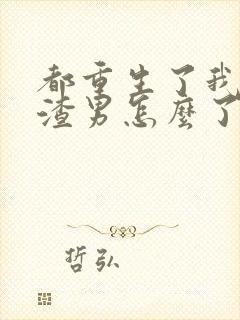 都重生了我
渣男怎麼了
哲弘